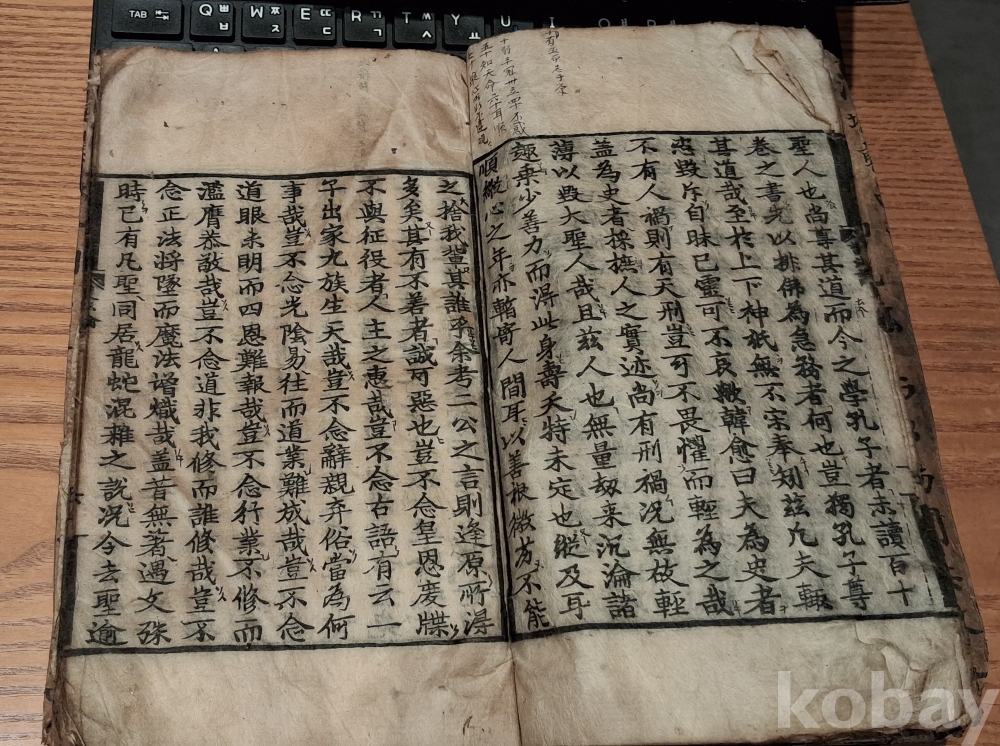 TAB Q ㅃ ㅂ W ㅉ ㅈ E ㄸ ㄷ R ㄲ ㄱ T ㅆ ㅅ Y U I
立四十不惑
五十知天命六十耳順
聖人也尚尊其道而今之學孔子者未讀百十
卷之書先以排佛為急務者何也豈獨孔子尊
其道哉至於上下神祇無不宗奉矧茲凡夫輒
恣毀斥自昧已靈可不哀歟韓愈曰夫為史者
不有人禍則有天刑豈可不畏懼而輕為之哉
盖為史者採摭人之實迹尚有刑禍況無故輕
薄以毀大聖人哉且茲人也無量劫来沉淪諸
趣乘少善力而得此身壽夭特未定也縱及耳
順縱心之年亦暫寄人間耳以善根微劣不能
之捨我其誰乎余考二公之言則逢原所得
多矣其有不善者誠可惡也豈不念皇恩度牒
不與征役者人主之惠哉豈不念古語有云一
子出家九族生天哉豈不念辭親弃俗當為何
事哉豈不念光陰易往而道業難成哉豈不念
道眼未明而四恩難報哉豈不念行業不修而
濫膺恭敬哉豈不念道非我修而誰修哉豈不
念正法將墜而魔法熾哉盖昔無著遇文殊
時已有凡聖同居龍蛇混雜之說况今去聖逾
kobay